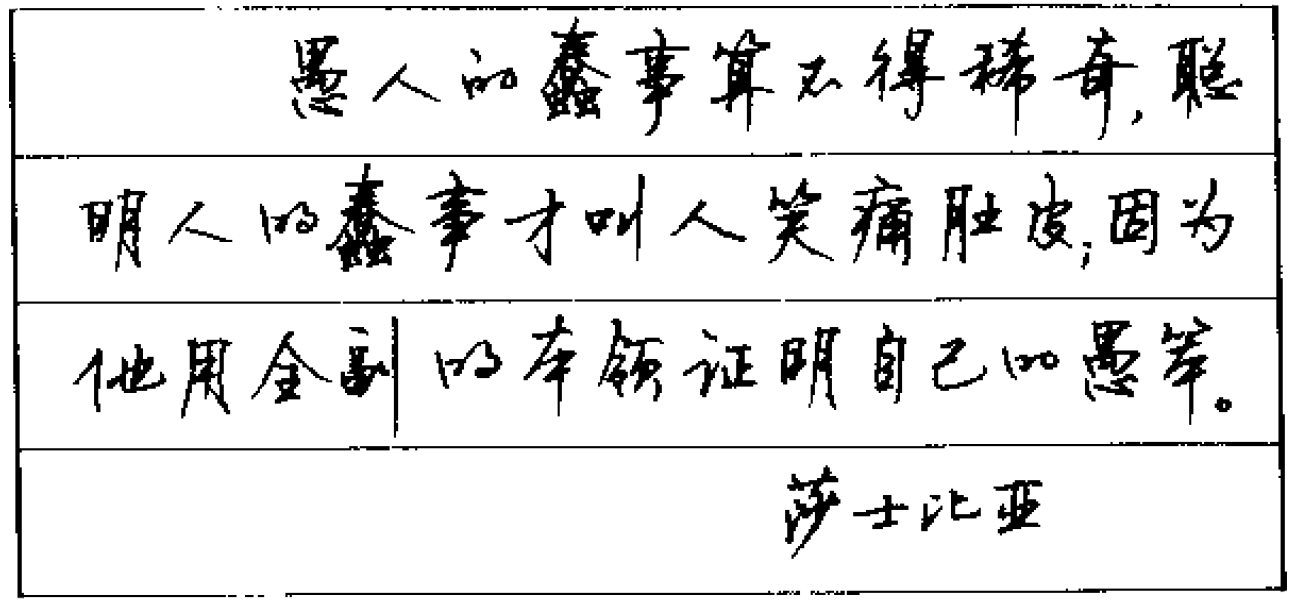 愚人的蠢事算不得稀奇,聪
明人的蠢事才叫人笑痛肚皮;因为
他用全副的本领证明自己的愚笨。
莎士比亚